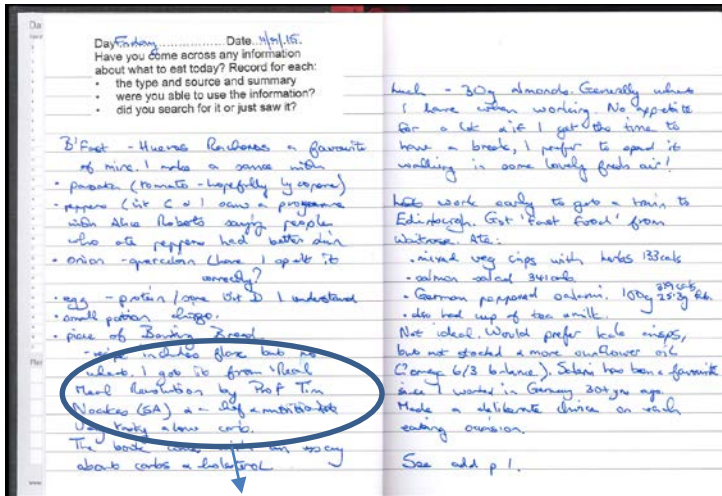 Day Friday Date 11/9/15.
Have you come across any information
about what to eat today? Record for each:
• the type and source and summary
• were you able to use the information?
• did you search for it or just saw it?
B'Fast - Huevos Rancheros a favourite
of mine. I make a sauce with
• passata (tomato - hopefully lycopene)
• peppers (vit C & I saw a programme
with Alice Roberts saying people
who ate peppers had better skin
• onion - quercetin (have I spelt it
correctly?
• egg - protein / some Vit D I understand
• small potion
• piece of Banting Bread
- recipe includes flax but no
wheat. I got it from 'Real
Meal Revolution by Prof Tim
Noakes (SA) a chef & nutritionist
Very tasty & low carb.
The book comes with an essay
about carbs & cholesterol
Lunch - 30g almonds. Generally what
I have when working. No appetite
for a lot & if I get the time to
have a break, I prefer to spend it
walking in some lovely fresh air!
work early to get a train to
Edinburgh. Got 'Fast Food' from
Waitrose. Ate:
• mixed veg crisps with herbs 133cals
• salmon salad 341cals
• German peppered salami. 100g 25.3g
• also had cup of tea & milk.
Not ideal. Would prefer kale crisps,
but not stocked & more sunflower oil
(? omega 6/3 balance). Salami has been a favourite
since I worked in Germany 30+ yrs ago.
Made a deliberate choice on each
eating occasion.
See add p 1.